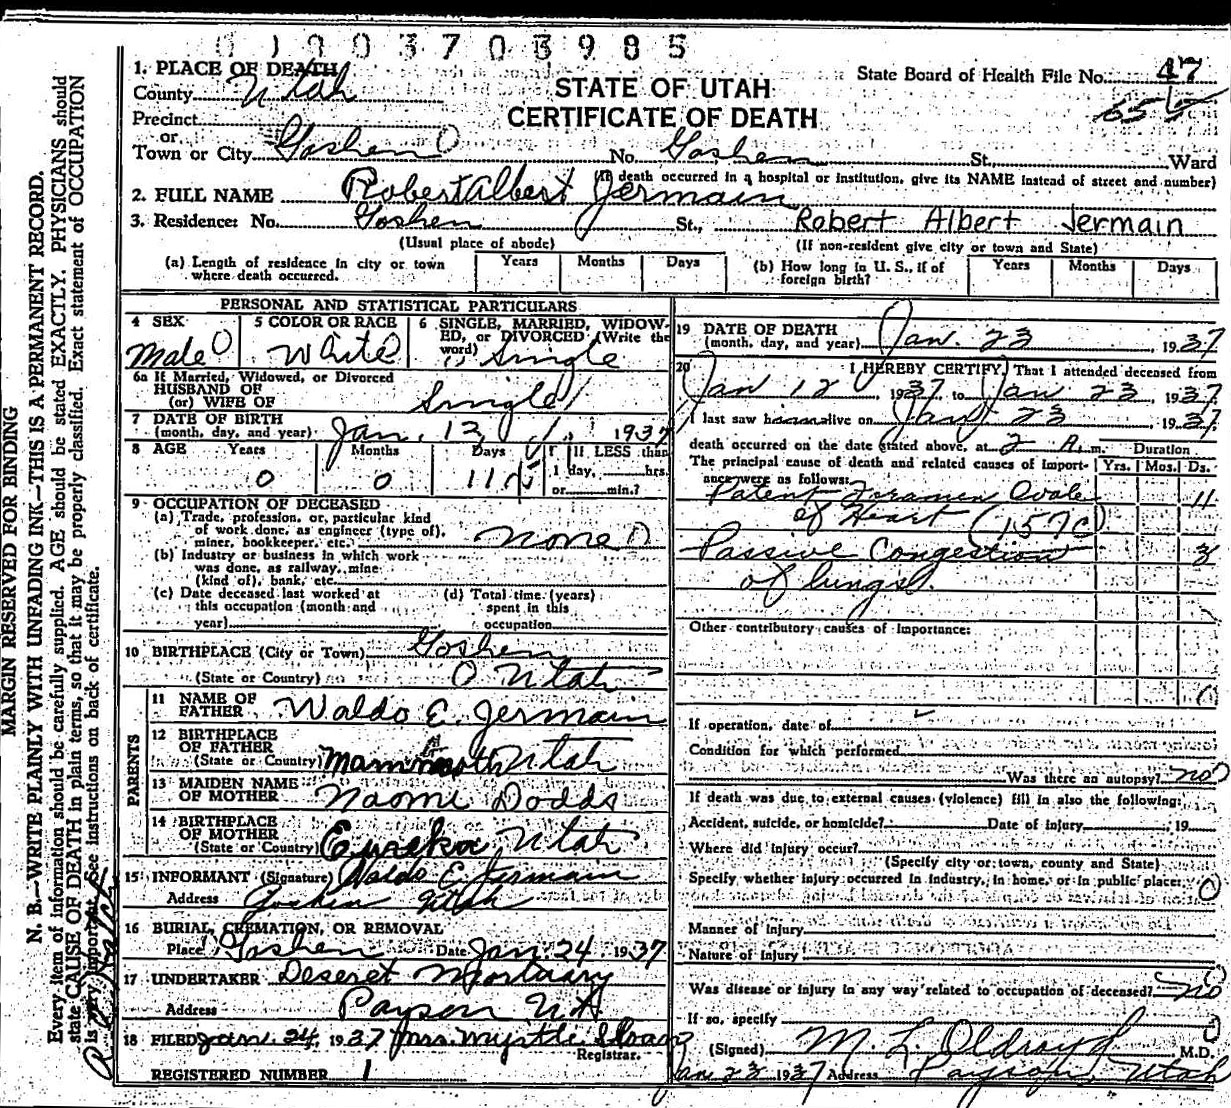 0 1 9 0 3 7 0 3 9 8 5
1. PLACE OF DEATH
County Utah
STATE OF UTAH
CERTIFICATE OF DEATH
State Board of Health File No. 47
Precinct
or
Town or City Goshen No. Goshen St., Ward
(If death occurred in a hospital or institution, give its NAME instead of street and number)
2. FULL NAME Robert Albert Jermain
3. Residence: No. Goshen St., Robert Albert Jermain
(Usual place of abode) (If non-resident give city or town and State)
(a) Length of residence in city or town where death occurred. Years Months Days
(b) How long in U. S., if of foreign birth? Years Months Days
PERSONAL AND STATISTICAL PARTICULARS
4 SEX
Male
5 COLOR OR RACE
White
6 SINGLE, MARRIED, WIDOWED, or DIVORCED (Write the word)
Single
6a If Married, Widowed, or Divorced
HUSBAND OF
(or) WIFE OF Single
7 DATE OF BIRTH
(month, day, and year) Jan. 12, 1937
8 AGE Years Months Days If LESS than
0 0 11 1 day, hrs.
or min.?
9 OCCUPATION OF DECEASED
(a) Trade, profession, or particular kind
of work done, as engineer (type of),
miner, bookkeeper, etc. none
(b) Industry or business in which work
was done, as railway, mine
(kind of), bank, etc.
(c) Date deceased last worked at
this occupation (month and
year)
(d) Total time (years)
spent in this
occupation
10 BIRTHPLACE (City or Town) Goshen
(State or Country) Utah
PARENTS
11 NAME OF
FATHER Waldo E. Jermain
12 BIRTHPLACE
OF FATHER
(State or Country) Mammoth Utah
13 MAIDEN NAME
OF MOTHER Naomi Dodds
14 BIRTHPLACE
OF MOTHER
(State or Country) Eureka, Utah
15 INFORMANT (Signature) Waldo E. Jermain
Address Goshen Utah
16 BURIAL, CREMATION, OR REMOVAL
Place Goshen Date Jan 24 1937
17 UNDERTAKER Deseret Mortuary
Address Payson Ut
18 FILED Jan. 24, 1937 Mrs. Myrtle Sloan
Registrar.
REGISTERED NUMBER 1
19 DATE OF DEATH
(month, day, and year) Jan. 23, 1937
20 I HEREBY CERTIFY, That I attended deceased from
Jan 12 1937, to Jan 23, 1937.
I last saw him alive on Jan 23 1937.
death occurred on the date stated above, at 2 A. m. Duration
The principal cause of death and related causes of importance were as follows: Yrs. Mos. Ds.
Patent Foramen Ovale 11
of Heart (157c)
Passive Congestion 3
of lungs.
Other contributory causes of importance:
If operation, date of
Condition for which performed
Was there an autopsy? no
If death was due to external causes (violence) fill in also the following:
Accident, suicide, or homicide? Date of injury , 19
Where did injury occur?
(Specify city or town, county and State)
Specify whether injury occurred in industry, in home, or in public place: 0
Manner of injury
Nature of injury
Was disease or injury in any way related to occupation of deceased? no
If so, specify
(Signed) M. L. Oldroyd M.D.
Jan 23 1937 Address Payson, Utah
MARGIN RESERVED FOR BINDING
N. B.—WRITE PLAINLY WITH UNFADING INK—THIS IS A PERMANENT RECORD.
Every item of information should be carefully supplied. AGE should be stated EXACTLY. PHYSICIANS should
state CAUSE OF DEATH in plain terms, so that it may be properly classified. Exact statement of OCCUPATION
is very important. See instructions on back of certificate.